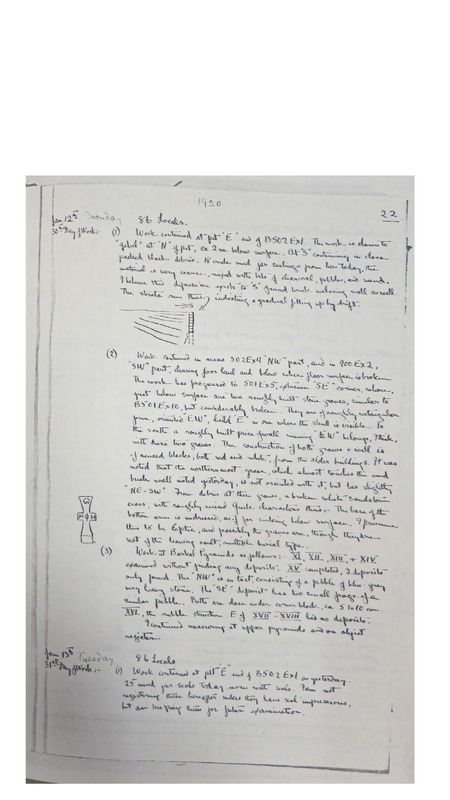 1920
22
Jan 12th Monday 86 Locals.
30th Day of Work:- (1) Work continued at pit "E" end of B502 Ex1. The work is down to
"gebel" at "N" of pit, ca 2 m below surface. At "S" continuing in close
packed black debris. 15 mud jar sealings from here today, the
material is very coarse, mixed with bits of charcoal, pebbles, and sand.
I believe this deposition spills to "S" of mud brick enclosing wall as well.
The strata run thus: indicating a gradual filling up by drift.
S
(2) Work continued in areas 502 Ex4 "NW" part, and in 900 Ex2,
"SW" part, clearing floor level and below where floor surface is broken.
The work has progressed to 501 Ex5, extreme "SE" corner, where
just below surface are two roughly built stone graves, similar to
B501 Ex10, but considerably broken. They are of roughly rectangular
form, oriented "EW", head "E" in one where the skull is visible. To
the south a roughly built piece of wall running "EW" belongs, I think,
with these two graves. The construction of both graves + wall is
of reused blocks, both red and white, from the older buildings. It was
noted that the northernmost grave, which almost touches the mud
brick wall noted yesterday, is not oriented with it, but lies slightly
"NE-SW". From debris at these graves, a broken white sandstone
cross, with roughly incised Greek characters thus:- The base of the
bottom arm is undressed, as if for sinking below surface. I presume
this to be Coptic, and possibly the graves are, though they are
not of the leaning vault, multiple burial type.
(3) Work at Barkal Pyramids as follows:- XI, XII, XIII, + XIV
examined without finding any deposits. XV completed, 2 deposits
only found. The "NW" is intact, consisting of a pebble of blue gray
very heavy stone. The "SE" deposit has two small frags of a
similar pebble. Both are down under corner block, ca 5 to 10 cm.
XVI, the rubble structure E of XVII - XVIII had no deposits.
I continued measuring at upper pyramids and on object
register.
Jan 13th Tuesday 86 Locals
31st Day of Work:- (1) Work continued at pit "E" end of B502 Ex1 as yesterday.
25 mud jar seals today, some with seals. I am not
registering these hereafter unless they have seal impressions,
but am keeping them for future examination.